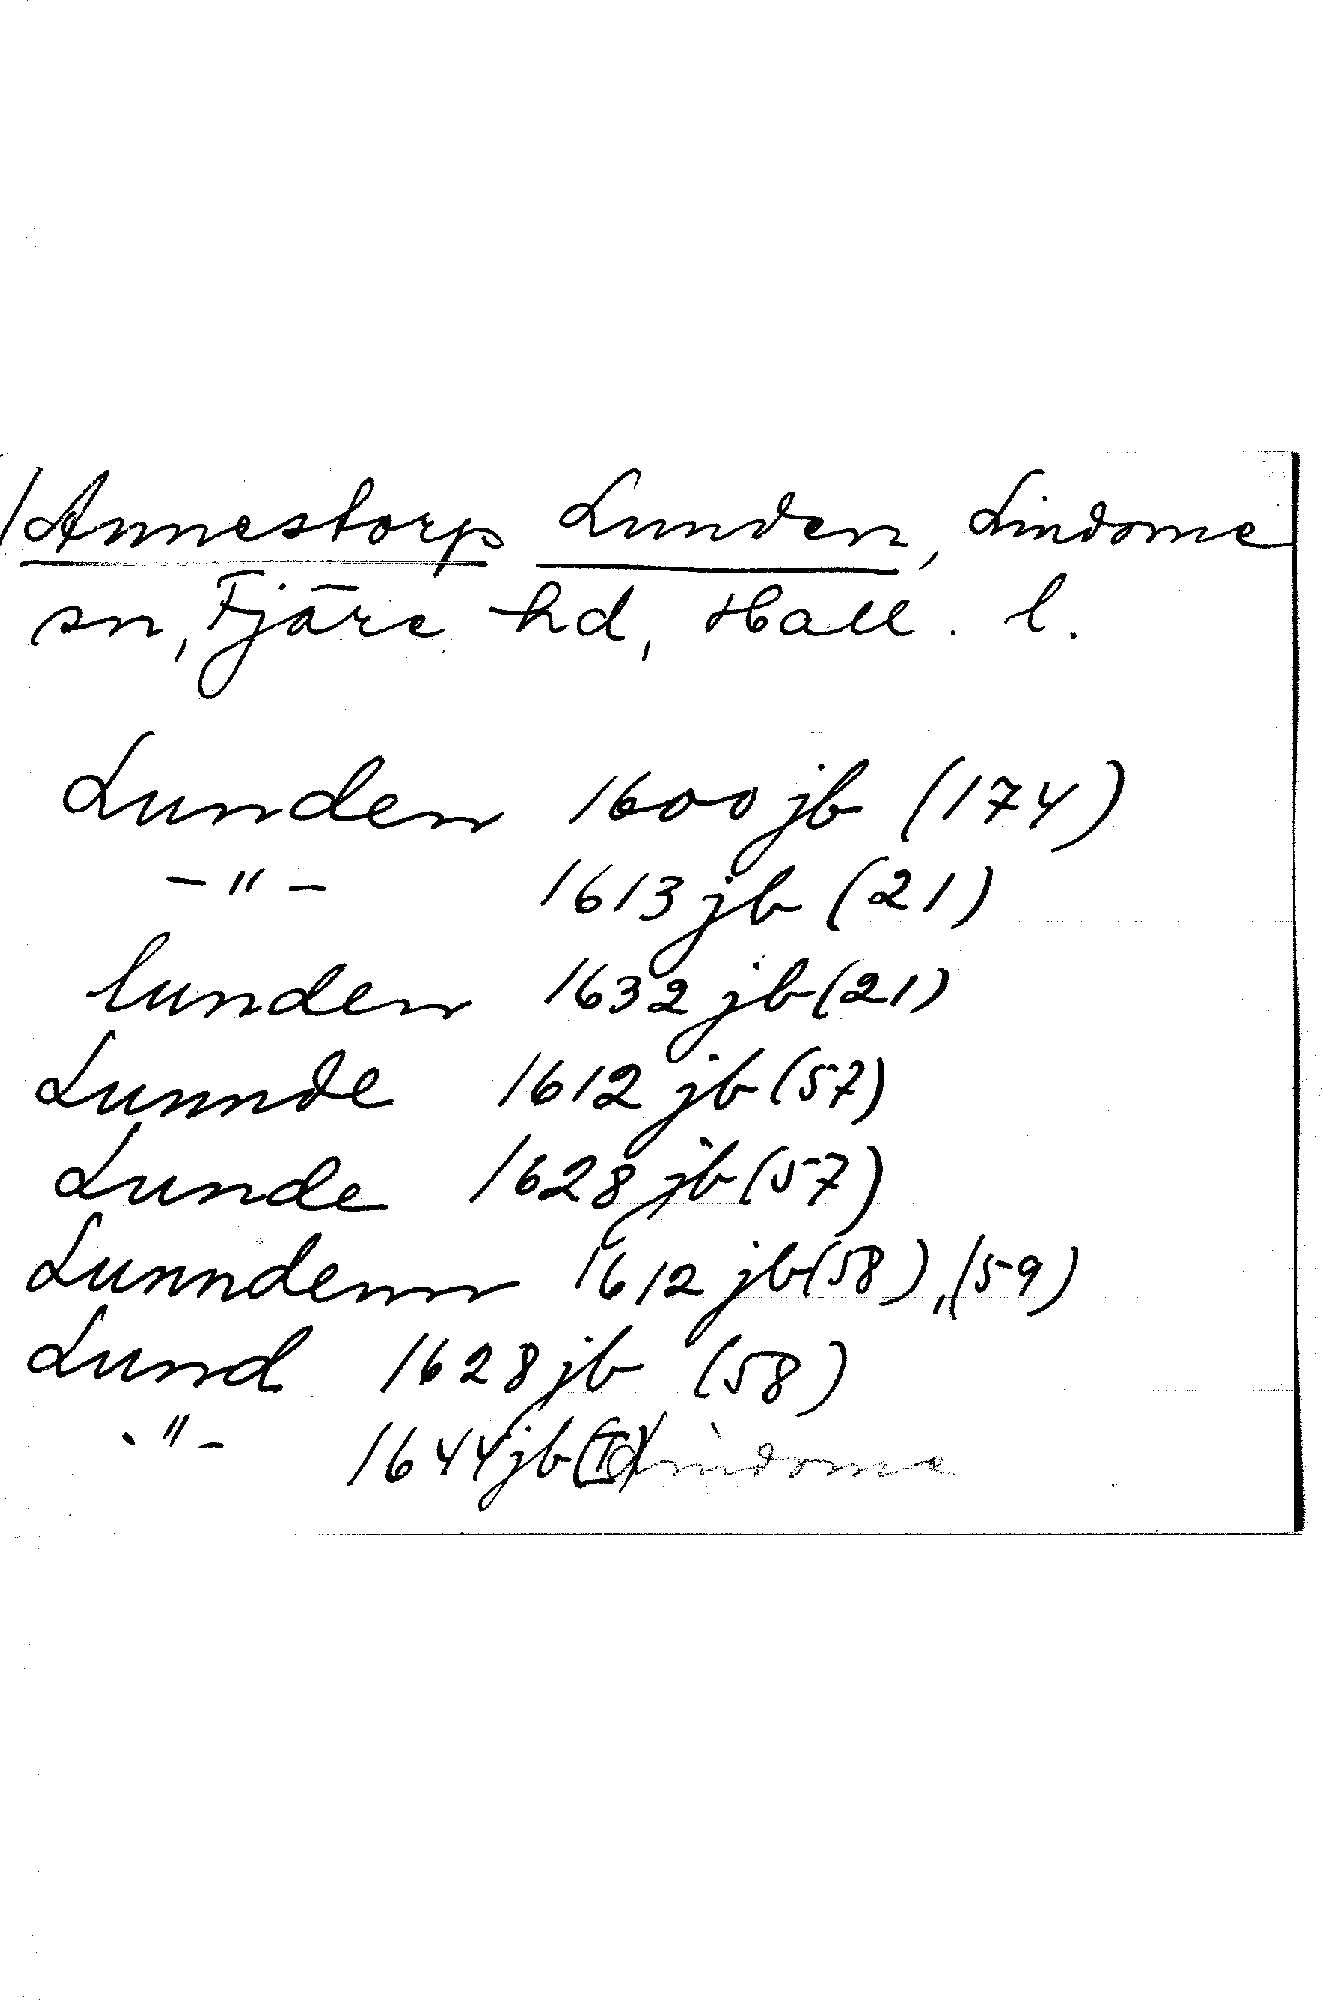 /Annestorp Lunden, Lindome
sn, Fjäre hd, Hall. l.
Lunden 1600 jb (174)
-"- 1613 jb (21)
lunden 1632 jb (21)
Lunnde 1612 jb (57)
Lunde 1628 jb (57)
Lunndenn 1612 jb (58), (59)
Lund 1628 jb (58)
-"- 1644 jb Lindome